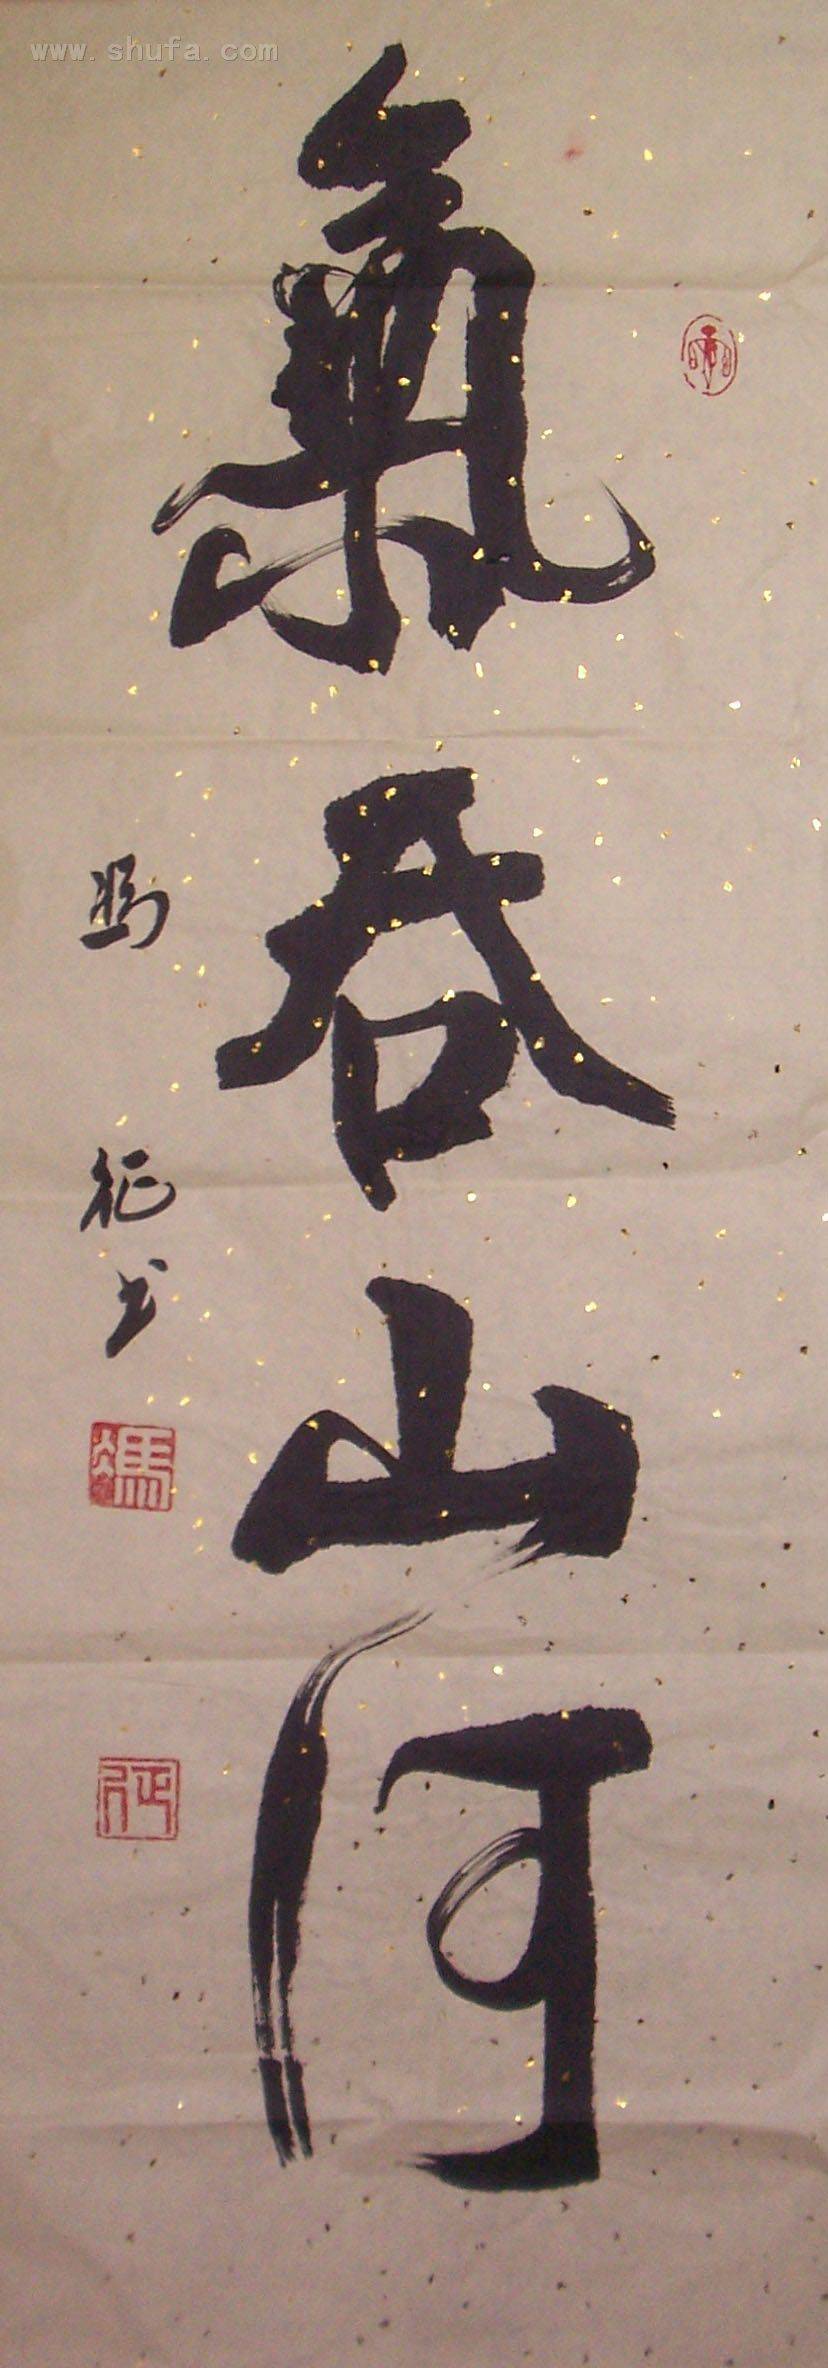 www.shufa.com
氣吞山河
馮征书
馮
征